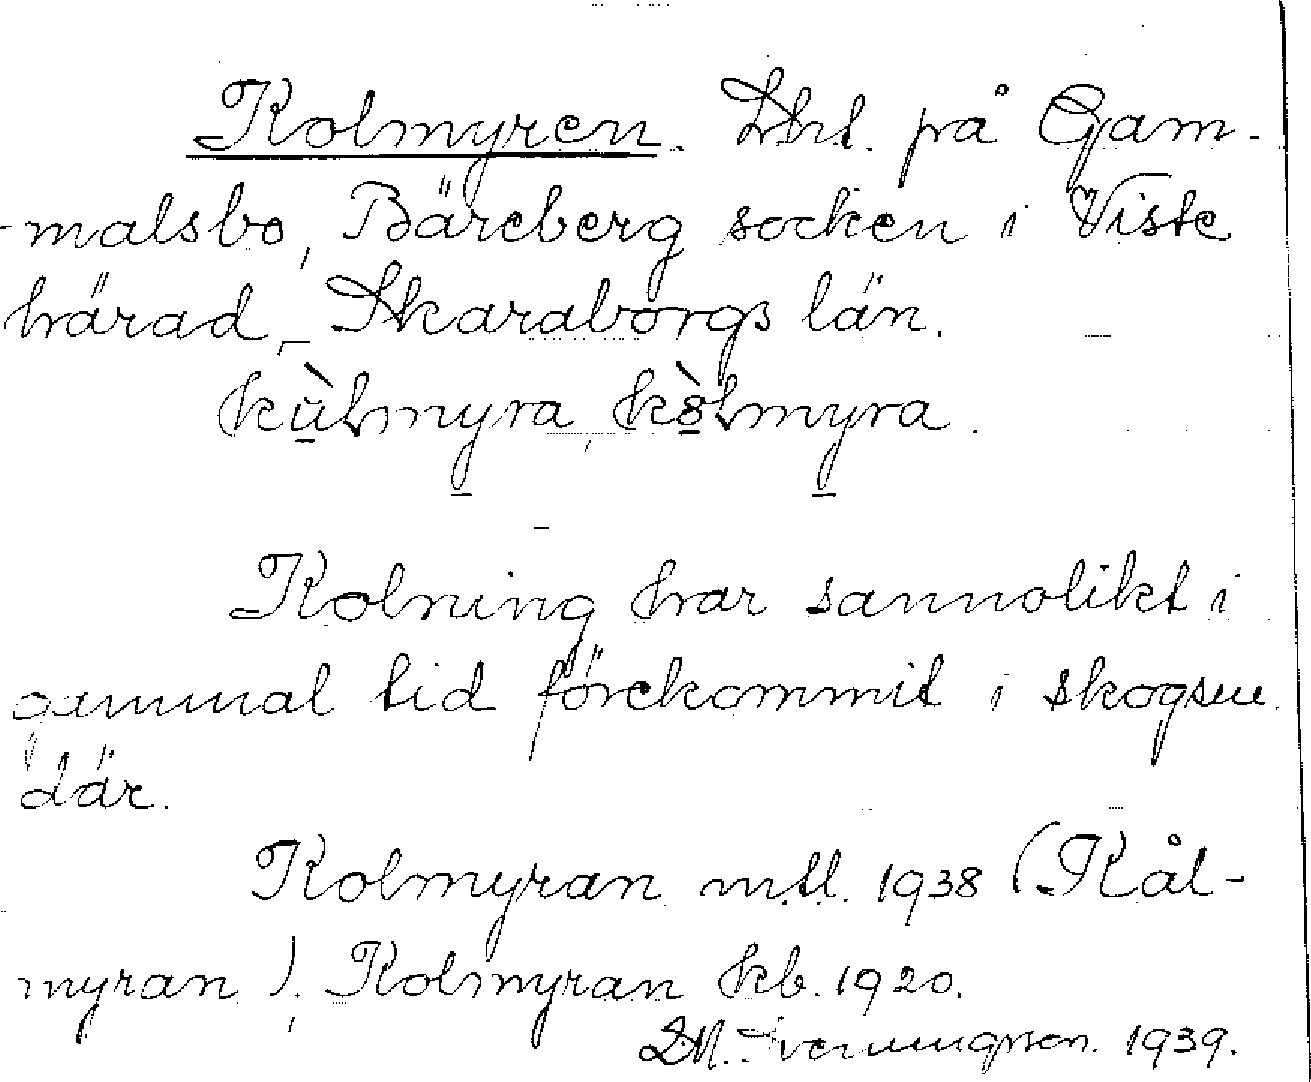 Kolmyren. Lht. på Gam-
malsbo, Bäreberg socken i Viste
härad, Skaraborgs län.
kùlmyra, kòlmyra.
Kolning har sannolikt i
gammal tid förekommit i skogen
där.
Kolmyran mtl. 1938 (Kål-
myran), Kolmyran kb. 1920.
1939.